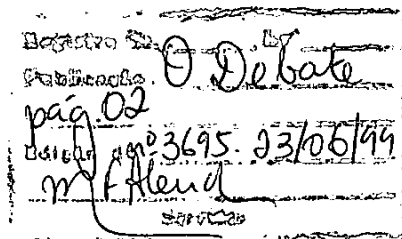 Registro
Publicação. O Debate
pág. 02
Edição nº 3695. 23/06/99
Serviço